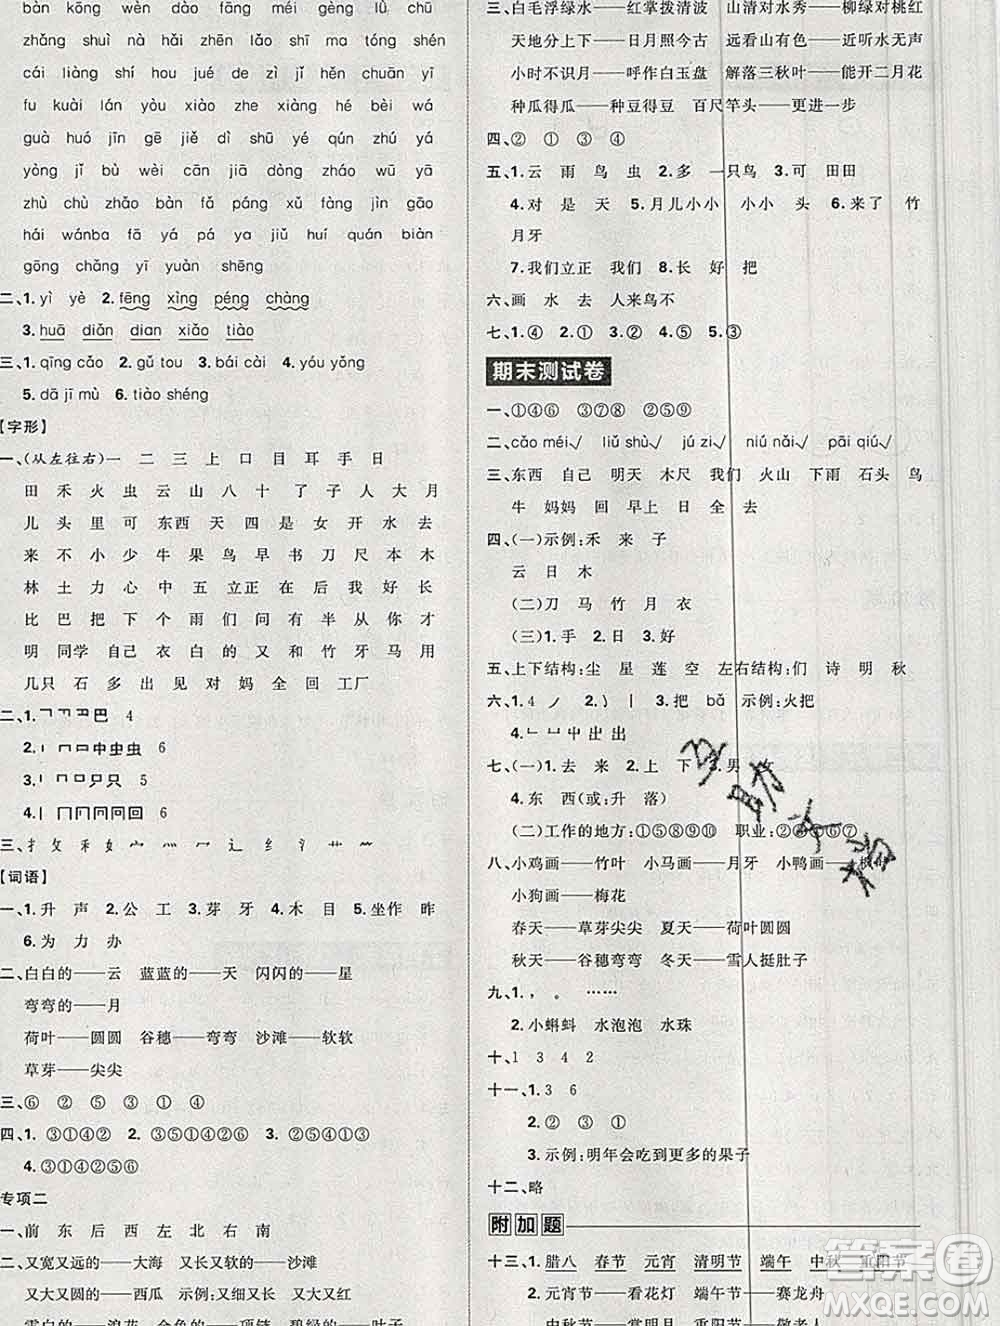 bàn kōng wèn dào fāng méi gěng jiā yǔ
zhǎng shuì nà hǎi zěn lǎo shī ma tóng shén
cái liàng shí hou jué de zì jǐ hěn chuān yī
fu kuài lán yòu xiào zhe xiàng jīn bèi wá
guà huó jīn gē jiě dì shū yé qún zhú yá
yòng jǐ bù wèi cān jiā dòng zháo yá rén
zhù chù zhǎo bàn fǎ páng xǔ fàng jìn gāo
hái wánba fā yá pá yā huì quán biàn
gōng chǎng yī yuàn shēng
二、1. yì yè 2. fēng xìng péng chàng
3. huā diǎn dian xiǎo tiào
三、1. qīng cǎo 2. gǔ tou 3. bái cài 4. yóu yǒng
5. dā jī mù 6. tiào shéng
【字形】
一、(从左往右)一 二 三 上 口 目 耳 手 日
田 禾 火 虫 云 山 八 十 了 子 人 大 月
儿 头 里 可 东西 天 四 是 女 开 水 去
来 不 小 少 牛 果 鸟 早 书 刀 尺 本 木
林 土 力 心 中 五 立正 在 后 我 好 长
比 巴 把 下 个 雨 们 问 有 半 从 你 才
明 同学 自己 衣 白 的 又 和 竹 牙 马 用
几只 石 多 出 见 对 妈 全 回 工厂
二、1. 巴 4
2. 中虫虫 6
3. 只 5
4. 回 6
三、
【词语】
一、1. 升 声 2. 公 工 3. 芽 牙 4. 木 目 5. 坐作 昨
6. 为 力 办
二、白白的——云 蓝蓝的——天 闪闪的——星
弯弯的——月
荷叶——圆圆 谷穗——弯弯 沙滩——软软
草芽——尖尖
三、⑥ ② ⑤ ③ ① ④
四、1. ③①④② 2. ③⑤①④② 3. ①④③②
4. ③①④②⑤⑥
专项二
一、前 东 后 西 左 北 右 南
二、又宽又大的——大海 又长又软的——沙滩
又大又圆的——西瓜 示例:又大又红
雪白的——浪花 金色的——项链 碧绿的——
三、白毛浮绿水——红掌拨清波 山清对水秀——柳绿对桃红
天地分上下——日月照今古 远看山有色——近听水无声
小时不识月——呼作白玉盘 解落三秋叶——能开二月花
种瓜得瓜——种豆得豆 百尺竿头——更进一步
四、② ① ③ ④
五、1. 云 雨 鸟 虫 2. 多 一只鸟 3. 可 田田
4. 对 是 天 5. 月儿小小 小小 头 6. 来了 竹
月牙
7. 我们立正 我们 8. 长 好 把
六、画 水 去 人来鸟不
七、1. ④ 2. ① 3. ② 4. ⑤ 5. ③
期末测试卷
一、①④⑥ ③⑦⑧ ②⑤⑨
二、cǎo méi√ liǔ shù√ jú zi√ niú nǎi√ pái qiú√
三、东西 自己 明天 木尺 我们 火山 下雨 石头 鸟
牛 妈妈 回 早上 日 全 去
四、(一)示例:禾 来 子
云 日 木
(二)刀 马 竹 月 衣
(三)1. 手 2. 日 3. 好
五、上下结构:尘 星 莲 空 左右结构:们 诗 明 秋
六、1. 4 ノ 2. ) 丨 3. 把 bǎ 示例:火把
4. 屮 出 出
七、(一)1. 去 来 2. 上 下 3. 男 女
4. 东 西(或:升 落)
(二)工作的地方:①⑤⑧⑨⑩ 职业:②③④⑥⑦
八、小鸡画——竹叶 小马画——月牙 小鸭画——枫叶
小狗画——梅花
春天——草芽尖尖 夏天——荷叶圆圆
秋天——谷穗弯弯 冬天——雪人挺肚子
九、1. , 。 ……
2. 小蝌蚪 水泡泡 水珠
十、1 3 4 2
十一、1. 3 6
2. ② ③
3. 示例:明年会吃到更多的果子
十二、略
附加题
十三、1. 腊八 春节 元宵 清明节 端午 中秋 重阳节
2. 元宵节——看花灯 端午节——赛龙舟
中秋节——赏月 重阳节——敬老人
答案圈
MXQE.COM